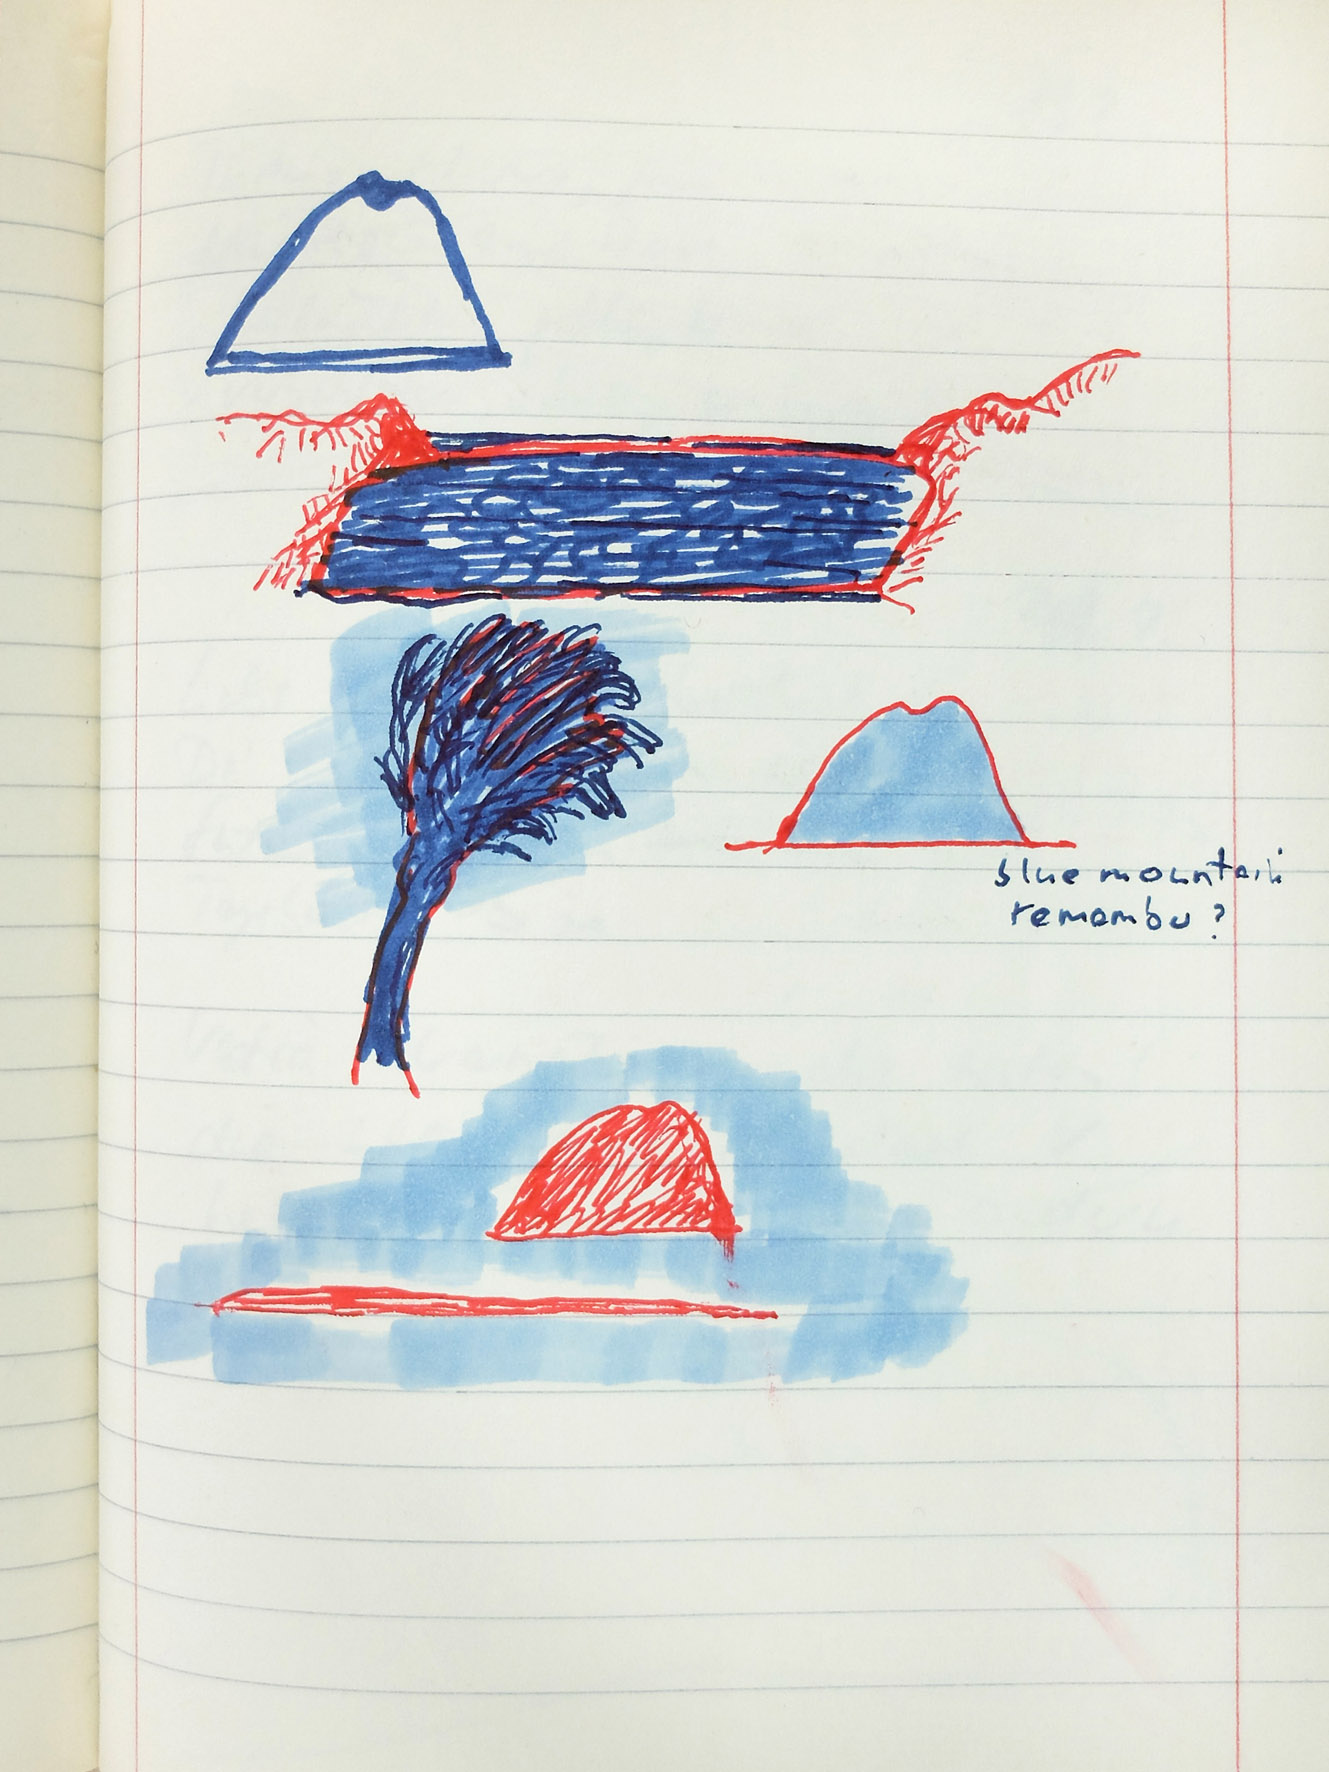 blue mountain
remember?